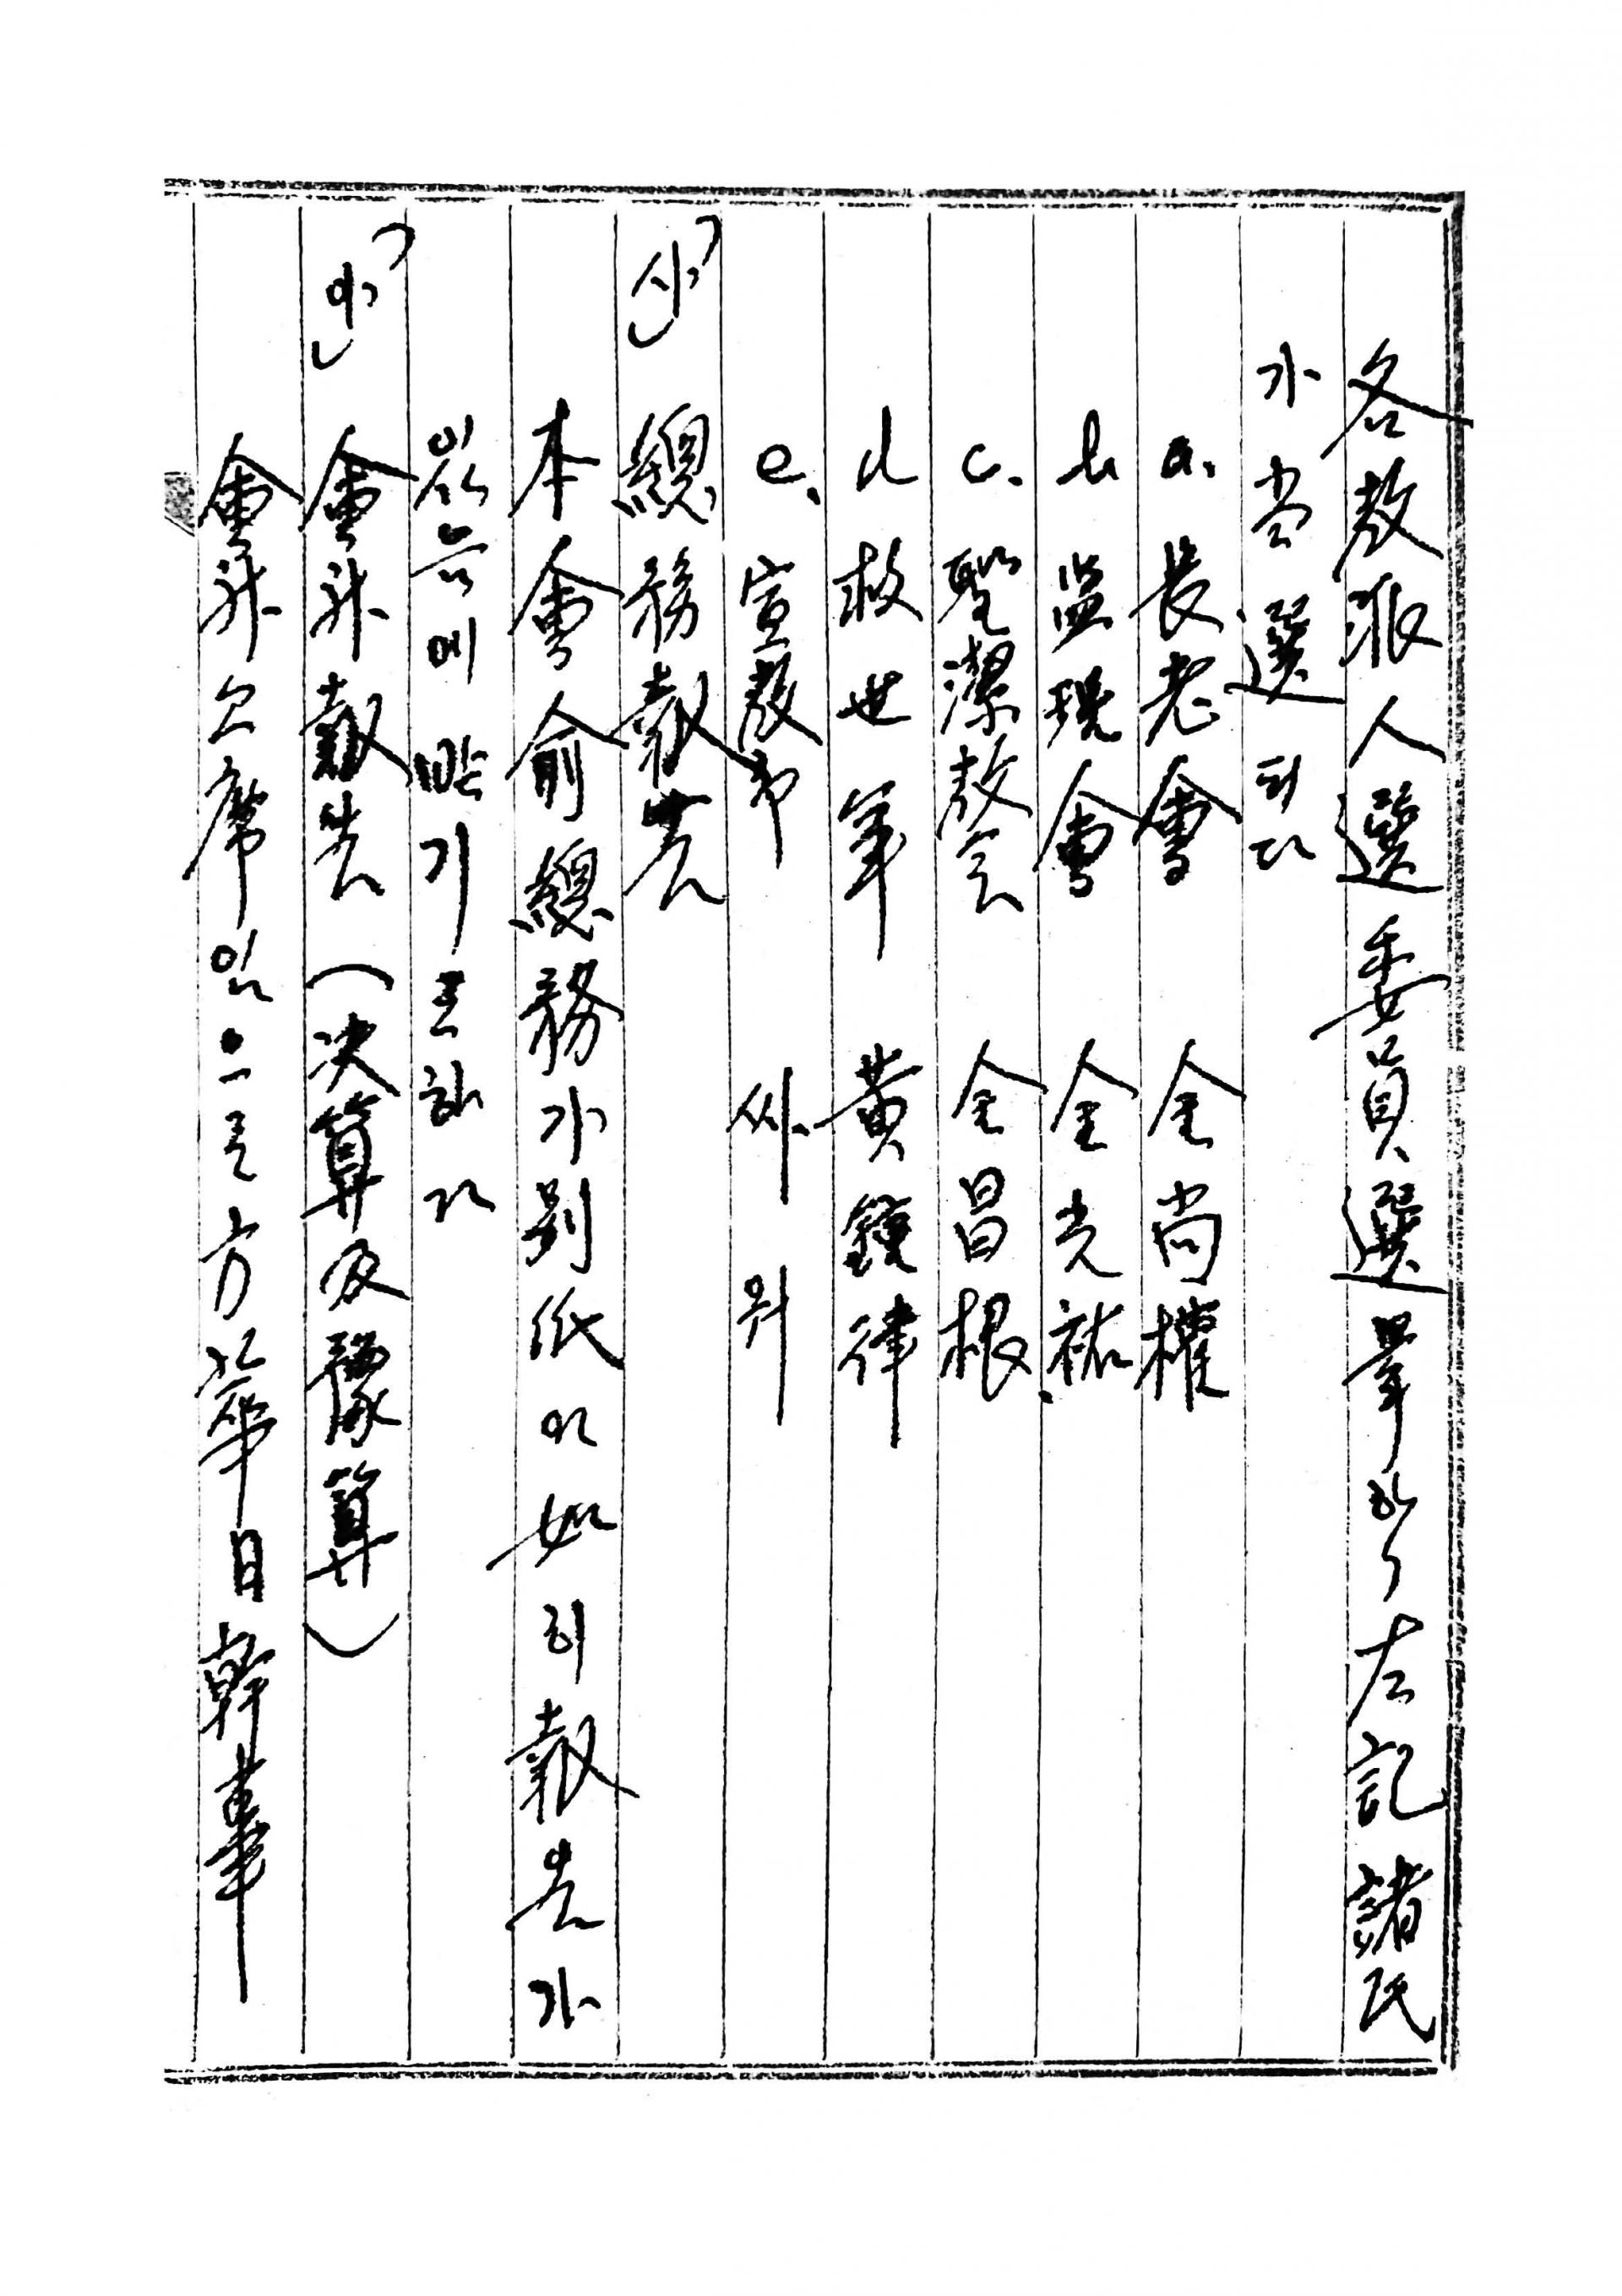 各教派人選委員選擧하니 左記 諸氏
가 當選되다
a. 長老會 金尚權
b 監理會 金光祐
c. 聖潔教会 金昌根
d 救世軍 黃鍾律
e. 宣教部 싸월
(사) 總務報告
本會 俞總務가 別紙와 如히 報告가
있음에 받기로 하다
(아) 會計報告 (決算及豫算)
會計 欠席임으로 方華日 幹事